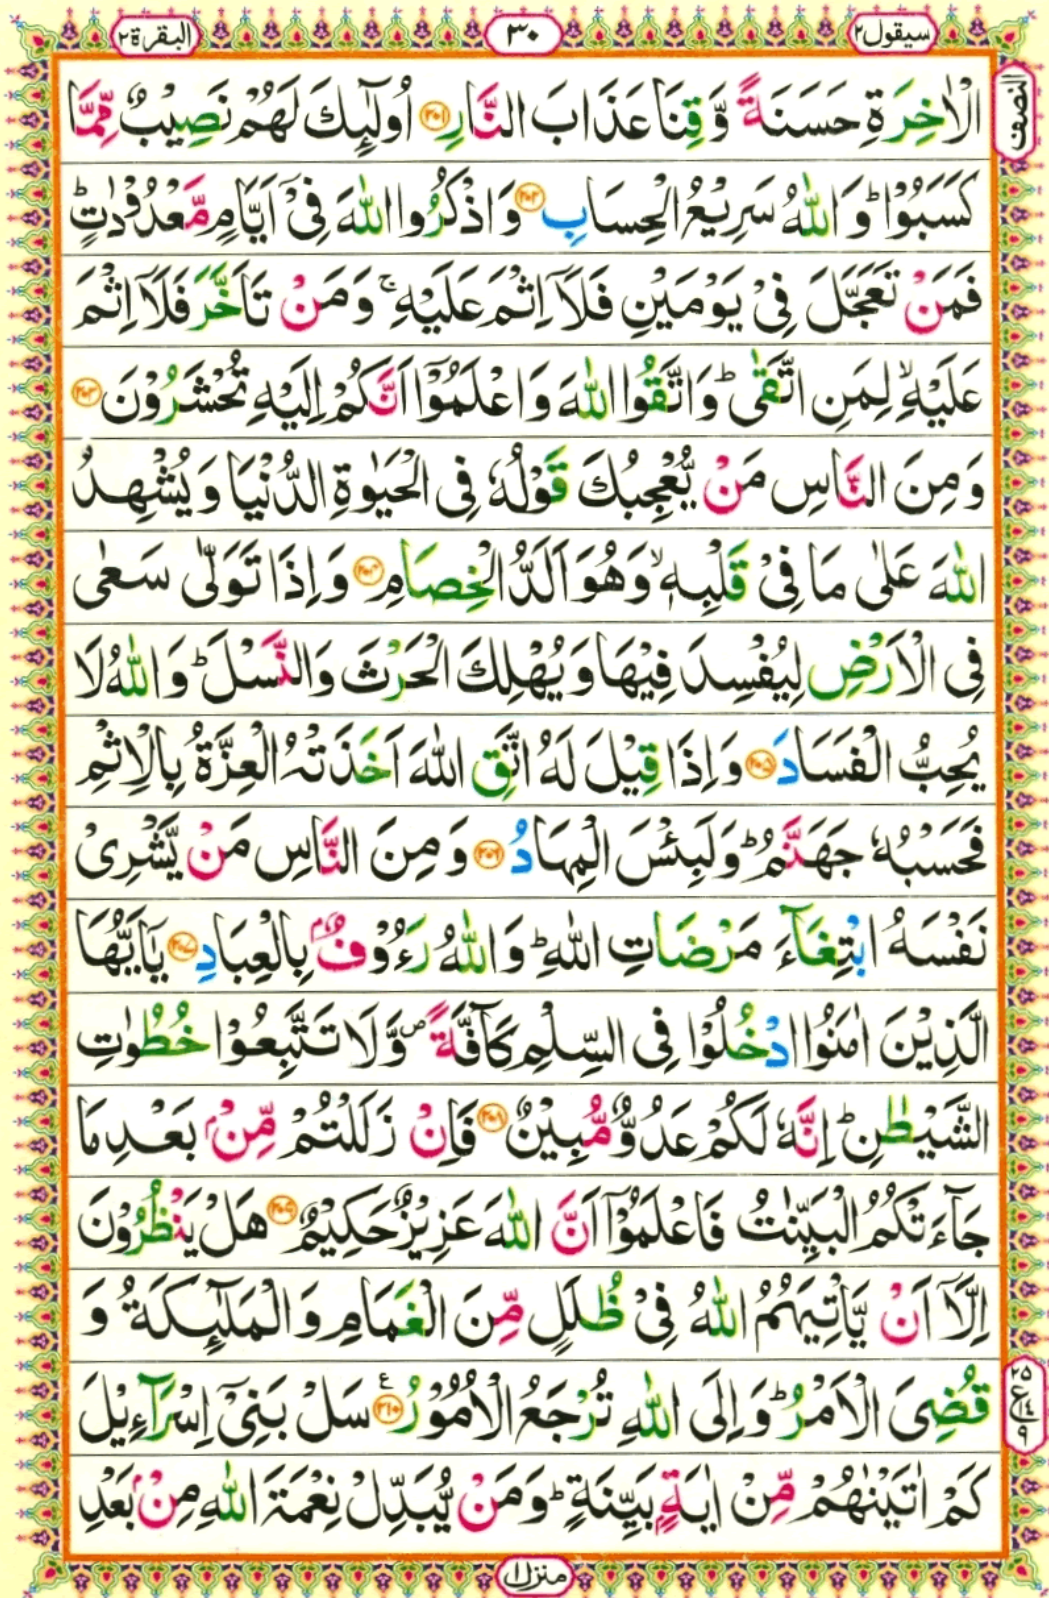 سیقول٢
٣٠
البقرة٢
النصف
الْاٰخِرَةِ حَسَنَةً وَّقِنَا عَذَابَ النَّارِ ﴿٢٠١﴾ اُولٰٓئِكَ لَهُمْ نَصِیْبٌ مِّمَّا
كَسَبُوْا ؕ وَ اللّٰهُ سَرِیْعُ الْحِسَابِ ﴿٢٠٢﴾ وَ اذْكُرُوا اللّٰهَ فِیْۤ اَیَّامٍ مَّعْدُوْدٰتٍ ؕ
فَمَنْ تَعَجَّلَ فِیْ یَوْمَیْنِ فَلَاۤ اِثْمَ عَلَیْهِ ۚ وَ مَنْ تَاَخَّرَ فَلَاۤ اِثْمَ
عَلَیْهِ ۙ لِمَنِ اتَّقٰی ؕ وَ اتَّقُوا اللّٰهَ وَ اعْلَمُوْۤا اَنَّكُمْ اِلَیْهِ تُحْشَرُوْنَ ﴿٢٠٣﴾
وَ مِنَ النَّاسِ مَنْ یُّعْجِبُكَ قَوْلُهٗ فِی الْحَیٰوةِ الدُّنْیَا وَ یُشْهِدُ
اللّٰهَ عَلٰی مَا فِیْ قَلْبِهٖ ۙ وَ هُوَ اَلَدُّ الْخِصَامِ ﴿٢٠٤﴾ وَ اِذَا تَوَلّٰی سَعٰی
فِی الْاَرْضِ لِیُفْسِدَ فِیْهَا وَ یُهْلِكَ الْحَرْثَ وَ النَّسْلَ ؕ وَ اللّٰهُ لَا
یُحِبُّ الْفَسَادَ ﴿٢٠٥﴾ وَ اِذَا قِیْلَ لَهُ اتَّقِ اللّٰهَ اَخَذَتْهُ الْعِزَّةُ بِالْاِثْمِ
فَحَسْبُهٗ جَهَنَّمُ ؕ وَ لَبِئْسَ الْمِهَادُ ﴿٢٠٦﴾ وَ مِنَ النَّاسِ مَنْ یَّشْرِیْ
نَفْسَهُ ابْتِغَآءَ مَرْضَاتِ اللّٰهِ ؕ وَ اللّٰهُ رَءُوْفٌۢ بِالْعِبَادِ ﴿٢٠٧﴾ یٰۤاَیُّهَا
الَّذِیْنَ اٰمَنُوا ادْخُلُوْا فِی السِّلْمِ كَآفَّةً ۪ وَّ لَا تَتَّبِعُوْا خُطُوٰتِ
الشَّیْطٰنِ ؕ اِنَّهٗ لَكُمْ عَدُوٌّ مُّبِیْنٌ ﴿٢٠٨﴾ فَاِنْ زَلَلْتُمْ مِّنْۢ بَعْدِ مَا
جَآءَتْكُمُ الْبَیِّنٰتُ فَاعْلَمُوْۤا اَنَّ اللّٰهَ عَزِیْزٌ حَكِیْمٌ ﴿٢٠٩﴾ هَلْ یَنْظُرُوْنَ
اِلَّاۤ اَنْ یَّاْتِیَهُمُ اللّٰهُ فِیْ ظُلَلٍ مِّنَ الْغَمَامِ وَ الْمَلٰٓئِكَةُ وَ
قُضِیَ الْاَمْرُ ؕ وَ اِلَی اللّٰهِ تُرْجَعُ الْاُمُوْرُ ﴿٢١٠﴾ ع سَلْ بَنِیْۤ اِسْرَآءِیْلَ
٢٥
ع ١٤
٩
كَمْ اٰتَیْنٰهُمْ مِّنْ اٰیَةٍۭ بَیِّنَةٍ ؕ وَ مَنْ یُّبَدِّلْ نِعْمَةَ اللّٰهِ مِنْۢ بَعْدِ
منزل١